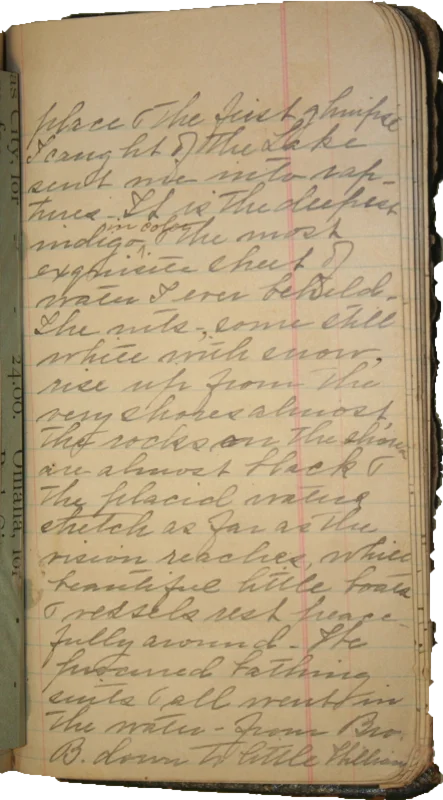 place & the first glimpse
I caught of the Lake
sent me into rap-
tures. It is the deepest
indigo in color & the most
exquisite sheet of
water I ever beheld.
The mts., some still
white with snow,
rise up from the
very shores almost
the rocks on the shores
are almost black &
the placid waters
stretch as far as the
vision reaches, while
beautiful little boats
& vessels rest peace-
fully around - We
procured bathing
suits & all went in
the water - from Bro.
B. down to little William
as City, for
24.00. Omaha, for